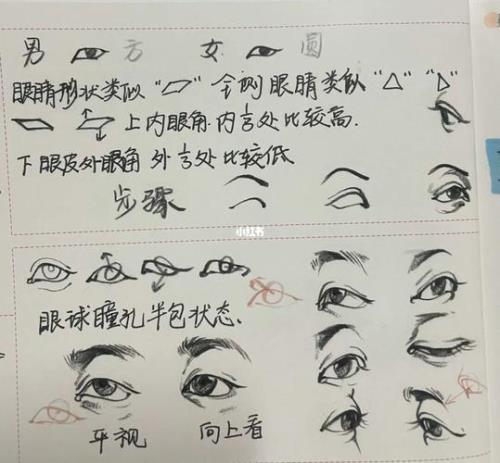 男 方 女 圆
眼睛形状类似“▱” 全侧眼睛类似“△”“▷”
上内眼角.内言处比较高.
下眼皮外眼角 外言处比较低
步骤
小红书
眼球瞳孔半包状态.
平视 向上看